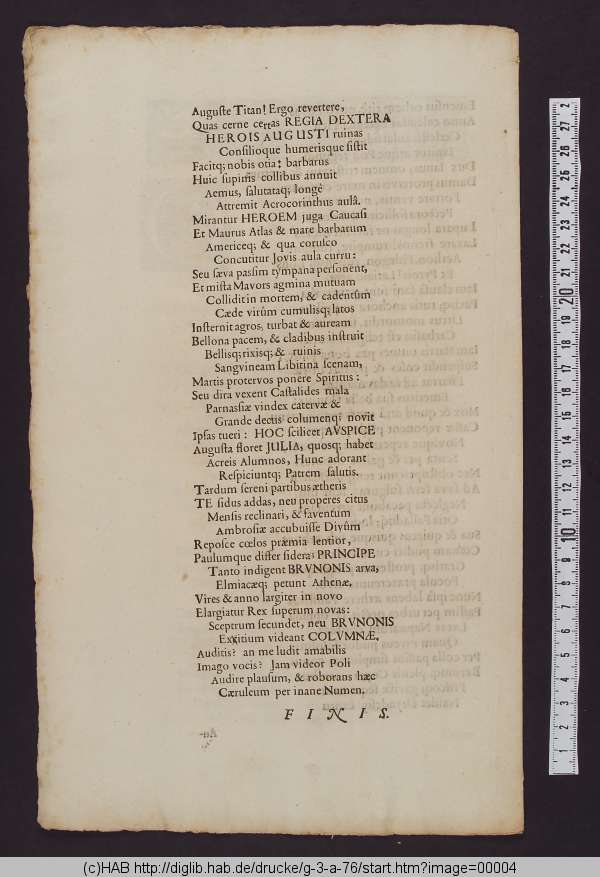 Auguste Titan! Ergo revertere,
Quas cerne certas REGIA DEXTERA
HEROIS AUGUSTI ruinas
Consilioque humerisque sistit
Facitq; nobis otia: barbarus
Huic supinis collibus annuit
Aemus, salutataq; longè
Attremit Acrocorinthus aulâ.
Mirantur HEROEM juga Caucasi
Et Maurus Atlas & mare barbarum
Americeq; & qua corusco
Concutitur Jovis aula curru:
Seu sæva passim tympana personent,
Et mista Mavors agmina mutuam
Collidit in mortem, & cadentûm
Cæde virûm cumulisq; latos
Insternit agros, turbat & auream
Bellona pacem, & cladibus instruit
Bellisq; rixisq; & ruinis
Sangvineam Libitina scenam,
Martis protervos ponere Spiritus:
Seu dira vexent Castalides mala
Parnassiæ vindex catervæ &
Grande decus columenq; novit
Ipsas tueri: HOC scilicet AVSPICE
Augusta floret JULIA, quosq; habet
Acreis Alumnos, Hunc adorant
Respiciuntq; Patrem salutis.
Tardum sereni partibus ætheris
TE sidus addas, neu properes citus
Mensis reclinari, & faventum
Ambrosiæ accubuisse Divûm
Reposce cœlos præmia lentior,
Paulumque differ sidera; PRINCIPE
Tanto indigent BRVNONIS arva,
Elmiacæq; petunt Athenæ,
Vires & anno largiter in novo
Elargiatur Rex superum novas:
Sceptrum secundet, neu BRVNONIS
Exitium videant COLVMNÆ,
Auditis? an me ludit amabilis
Imago vocis? Jam videor Poli
Audire plausum, & roborans hæc
Cæruleum per inane Numen.
FINIS.
(c)HAB http://diglib.hab.de/drucke/g-3-a-76/start.htm?image=00004